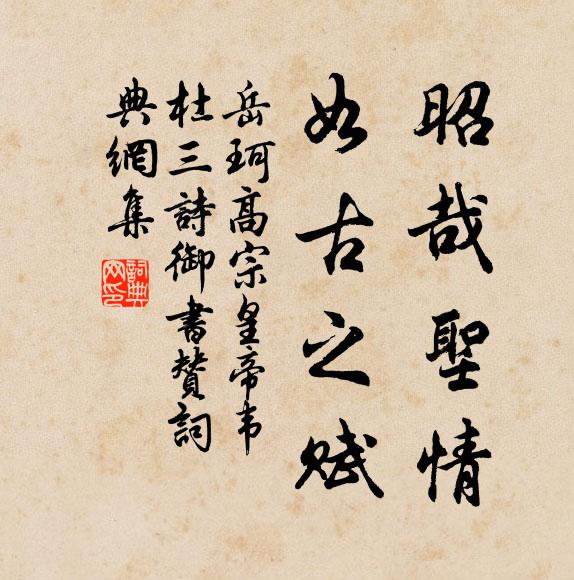 昭哉聖情
如古之赋
岳珂高宗皇帝韦
杜三詩御書贊詞
典網集
詞典网印